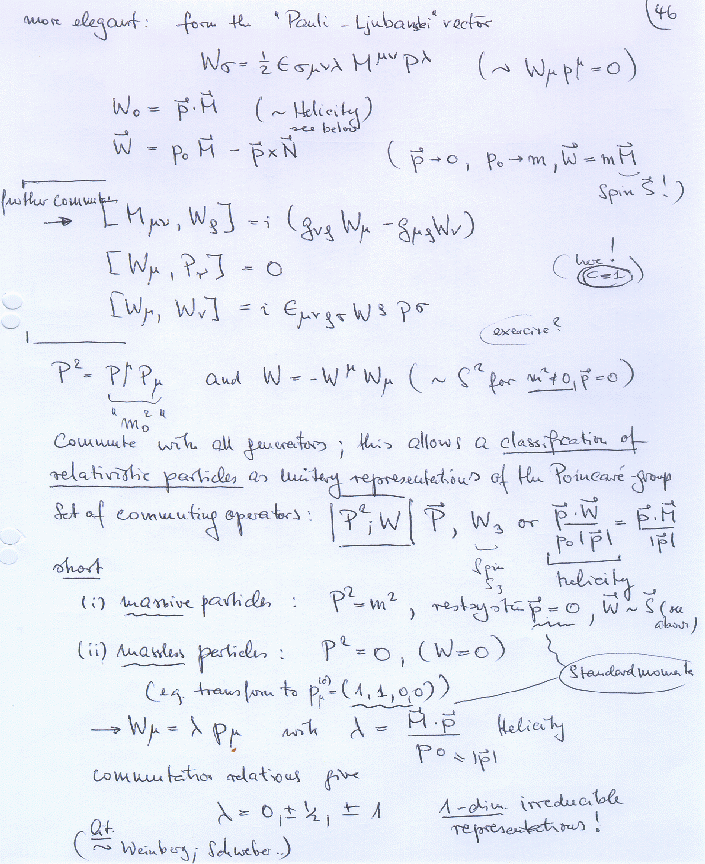 46
more elegant: form the "Pauli-Ljubanski" vector
Wσ = ½ ϵσμνλ M^μν P^λ (~ Wμ p^μ = 0)
W₀ = p⃗·M⃗ (~ Helicity)
see below
W⃗ = p₀ M⃗ − p⃗×N⃗ ( p⃗→0, p₀→m, W⃗ = mM⃗
Spin S⃗ !)
further commute
→ [Mμν, Wρ] = i (gνρ Wμ − gμρ Wν)
[Wμ, Pν] = 0 (here! c=1)
[Wμ, Wν] = i ϵμνρσ W^ρ p^σ
exercise?
P² = P^μ Pμ and W = −W^μ Wμ (~ S² for m²≠0, p⃗=0)
"m₀²"
Commute with all generators; this allows a classification of
relativistic particles as unitary representations of the Poincaré-group
Set of commuting operators: P²; W P⃗, W₃ or p⃗·W⃗ / p₀|p⃗| = p⃗·M⃗ / |p⃗|
Spin S₃ helicity
short
(i) massive particles: P² = m², restsystem p⃗ = 0, W⃗ ~ S⃗ (see above)
(ii) massless particles: P² = 0, (W=0)
Standard momenta
(e.g. transform to pμ^(0) = (1,1,0,0))
→ Wμ = λ pμ with λ = M⃗·p⃗ / p₀ Helicity
= |p⃗|
commutation relations give
λ = 0, ± ½, ± 1 1-dim. irreducible
representations!
(Lit. ~ Weinberg; Schweber..)